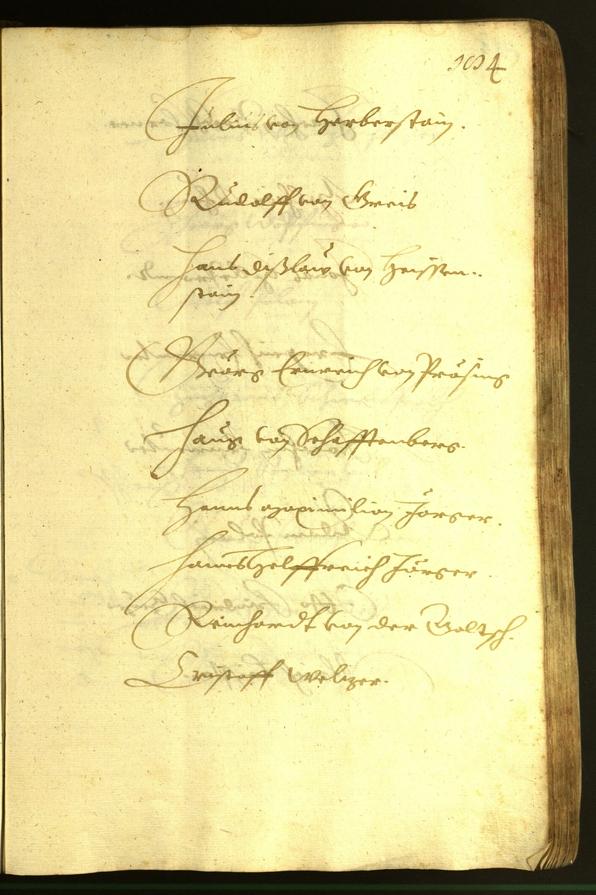 1014
Julius von Herberstain.
Rudolff von Greis
Hans dißlaw von Heissen-
stain.
Geörg Ernreich von Präsing
Hans von Schafftenberg.
Hanns maximilian Jörger.
Hanns Helffreich Jörger.
Reinhardt von der Goltsch.
Cristoff Welizer.